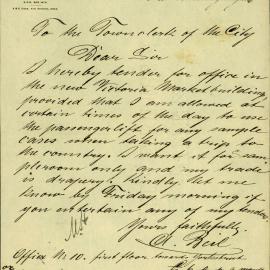 To the Townclerk of the City
Dear Sir
I hereby tender for office in
the new Victoria Market building
provided that I am allowed at
certain times of the day to use
the passengerlift for any sample
cases when taking a trip to
the country. I want it for sam
pleroom only and my trade
is drapery. Kindly let me
know by Friday morning if
you entertain any of my tender
Yours
faithfully
Office No 10. first floor